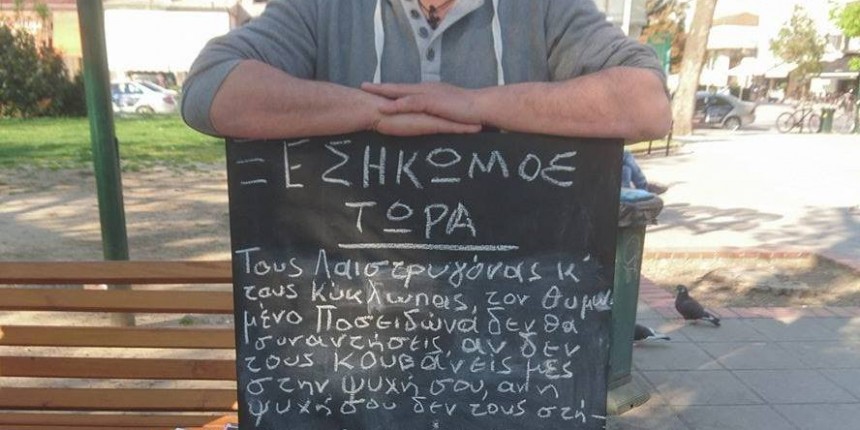 ΞΕΣΗΚΩΜΟΣ
ΤΩΡΑ
Τους Λαιστρυγόνας κ'
τους Κύκλωπας, τον θυμω-
μένο Ποσειδώνα δεν θα
συναντήσεις αν δεν
τους κουβανείς μές
στην ψυχή σου, αν η
ψυχή σου δεν τους στή-